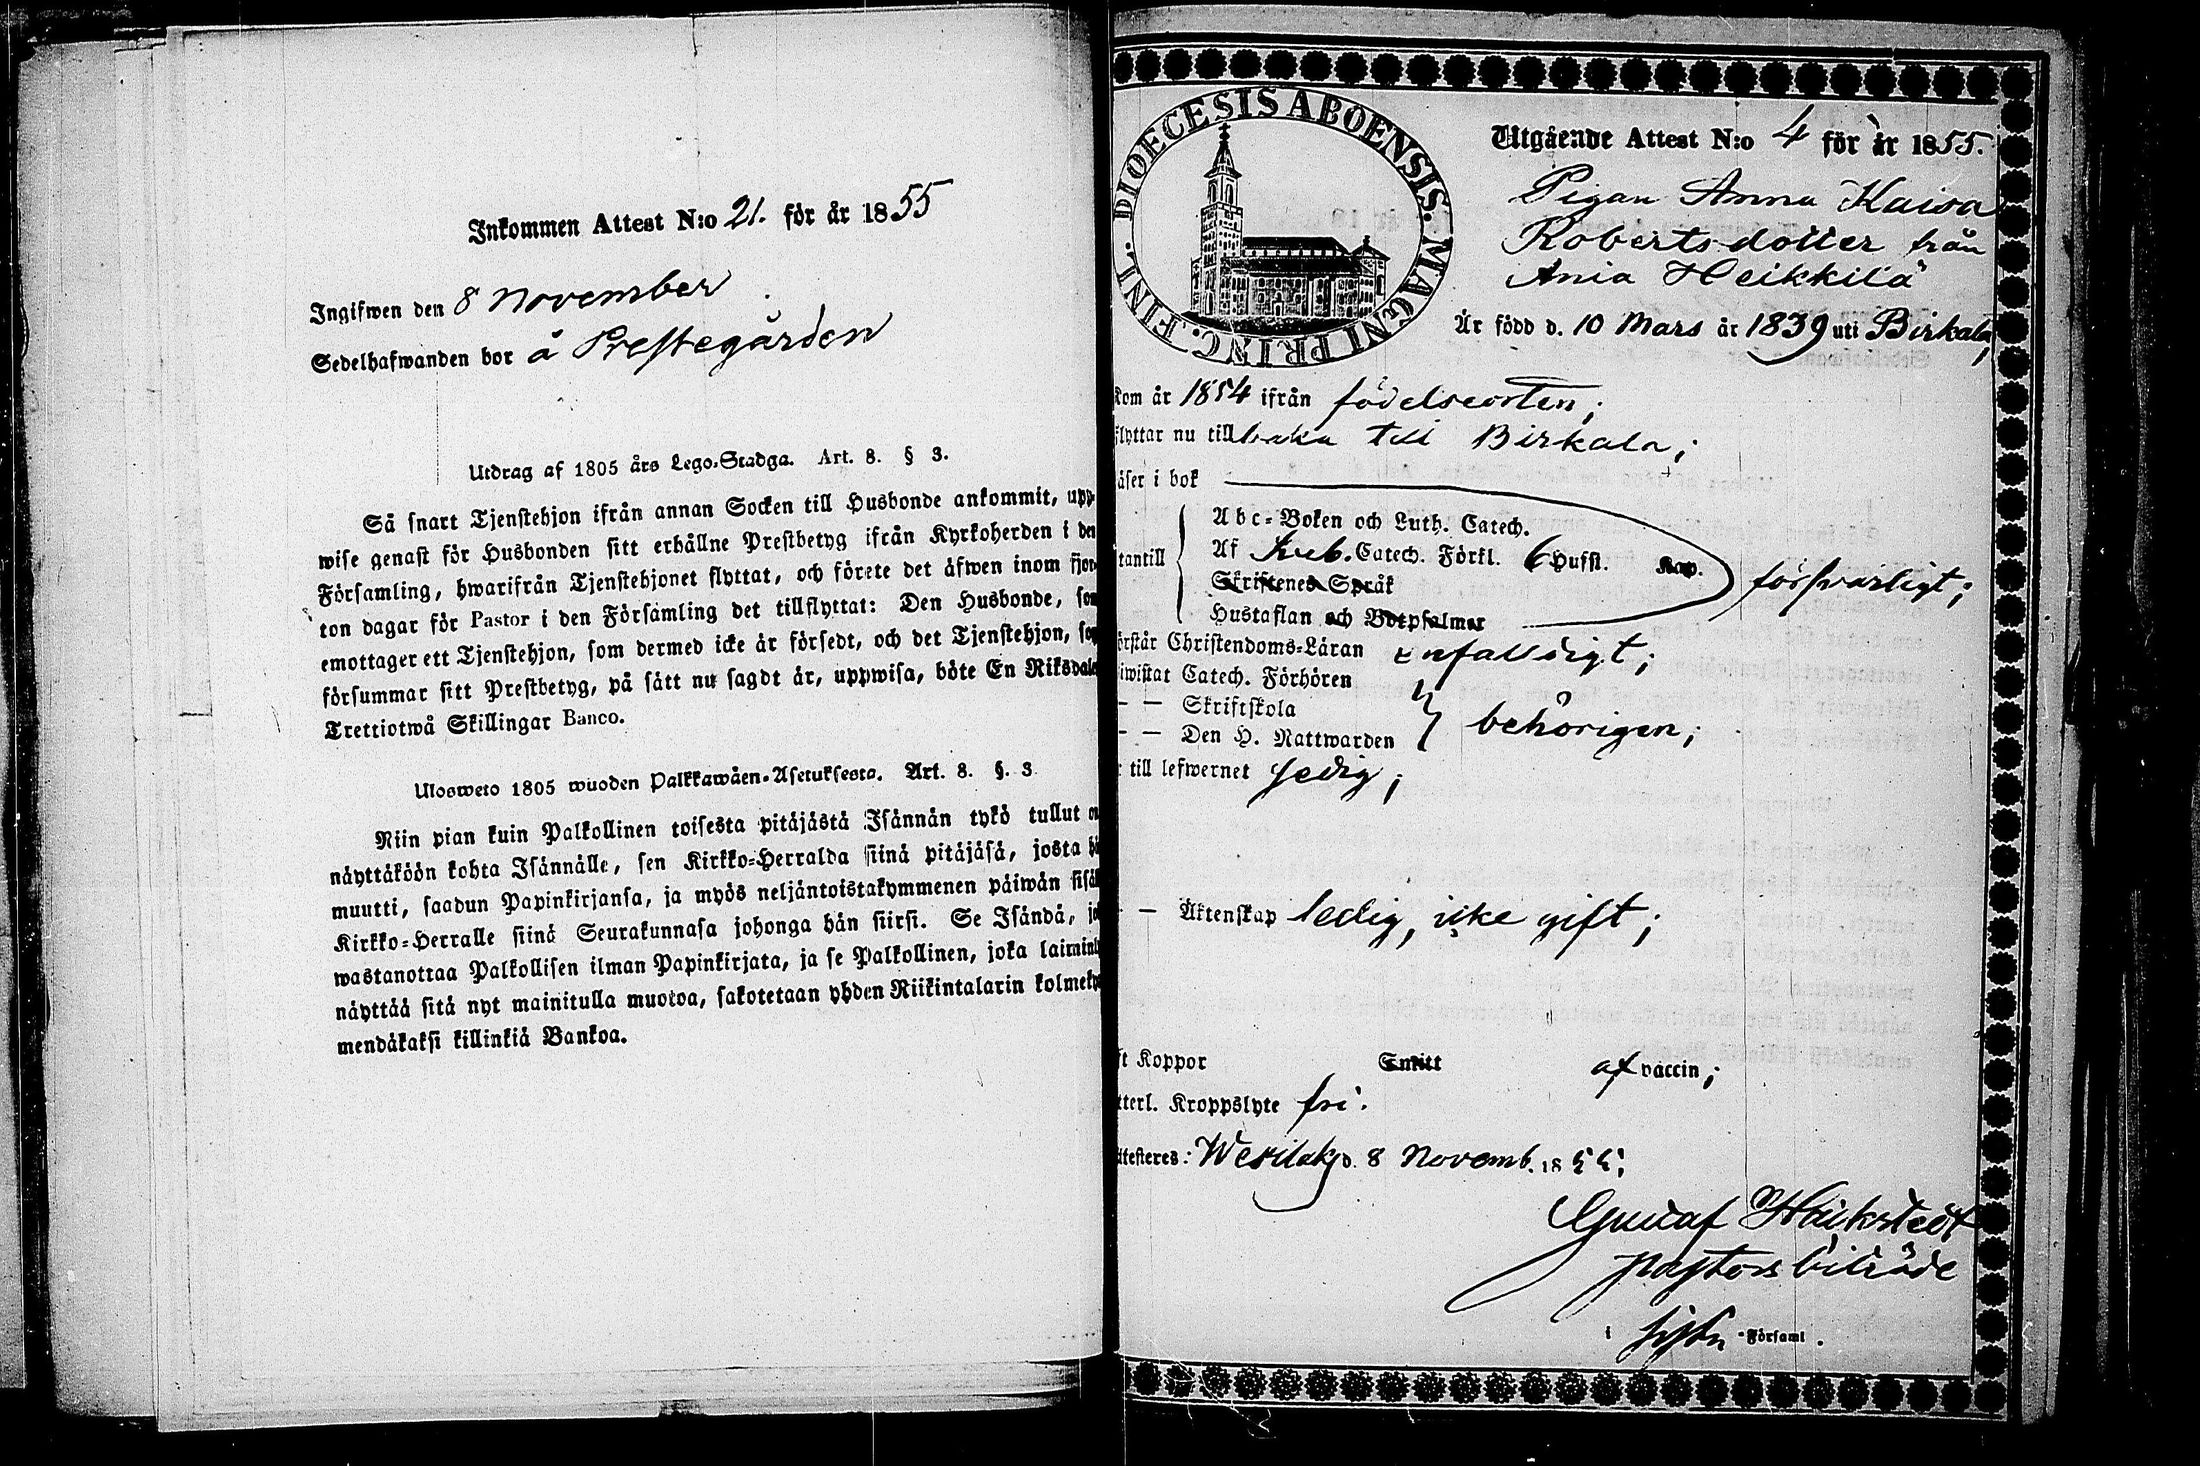 Inkommen Attest N:o 21. för år 1855
Ingifwen den 8 November
Sedelhafwanden bor å Prestegården
Utdrag af 1805 års Lego-Stadga. Art. 8. § 3.
Så snart Tjenstehjon ifrån annan Socken till Husbonde ankommit, upp-
wise genast för Husbonden sitt erhållne Prestbetyg ifrån Kyrkoherden i den
Församling, hwarifrån Tjenstehjonet flyttat, och förete det äfwen inom fjor-
ton dagar för Pastor i den Församling det tillflyttat: Den Husbonde, som
emottager ett Tjenstehjon, som dermed icke är försedt, och det Tjenstehjon, som
försummar sitt Prestbetyg, på sätt nu sagdt är, uppwisa, böte En Riksdaler
Trettiotwå Skillingar Banco.
Ulosweto 1805 wuoden Palkkawäen-Asetuksesta. Art. 8. §. 3
Niin pian kuin Palkollinen toisesta pitäjästä Isännän tykö tullut on
näyttäköön kohta Isännälle, sen Kirkko-Herralda siinä pitäjäsä, josta hä
muutti, saadun Papinkirjansa, ja myös neljäntoistakymmenen päiwän sisäl
Kirkko-Herralle siinä Seurakunnasa johonga hän siirsi. Se Isändä, jo
wastanottaa Palkollisen ilman Papinkirjata, ja se Palkollinen, joka laiminly
näyttää sitä nyt mainitulla muotoa, sakotetaan yhden Riikintalarin kolmeky
mendäkaksi killinkiä Bankoa.
DIOECESIS ABOENSIS. MAGNI PRINC. FINL.
Utgående Attest N:o 4 för år 1855.
Pigan Anna Kaisa
Robertsdotter från
Ania Heikkilä
Är född d. 10 Mars år 1839 uti Birkala,
Kom år 1854 ifrån födelseorten;
flyttar nu tillbaka till Birkala;
äser i bok
Abc-Boken och Luth. Catech.
tantill Af Sveb. Catech. Förkl. 6 Hufst. Kap. försvarligt;
Skriftenes Språk
Hustaflan och Botpsalmer
örstår Christendoms-Läran enfaldigt;
iwistat Catech. Förhören
— — Skriftskola
— — Den H. Nattwarden behörigen;
r till lefwernet sedig;
— — Äktenskap ledig, icke gift;
ft Koppor Smitt af vaccin;
tterl. Kroppslyte fri.
ttesteres: Wesilaks d. 8 Novemb. 1855;
Gustaf Heikstedt
pastors biträde
i Församl.